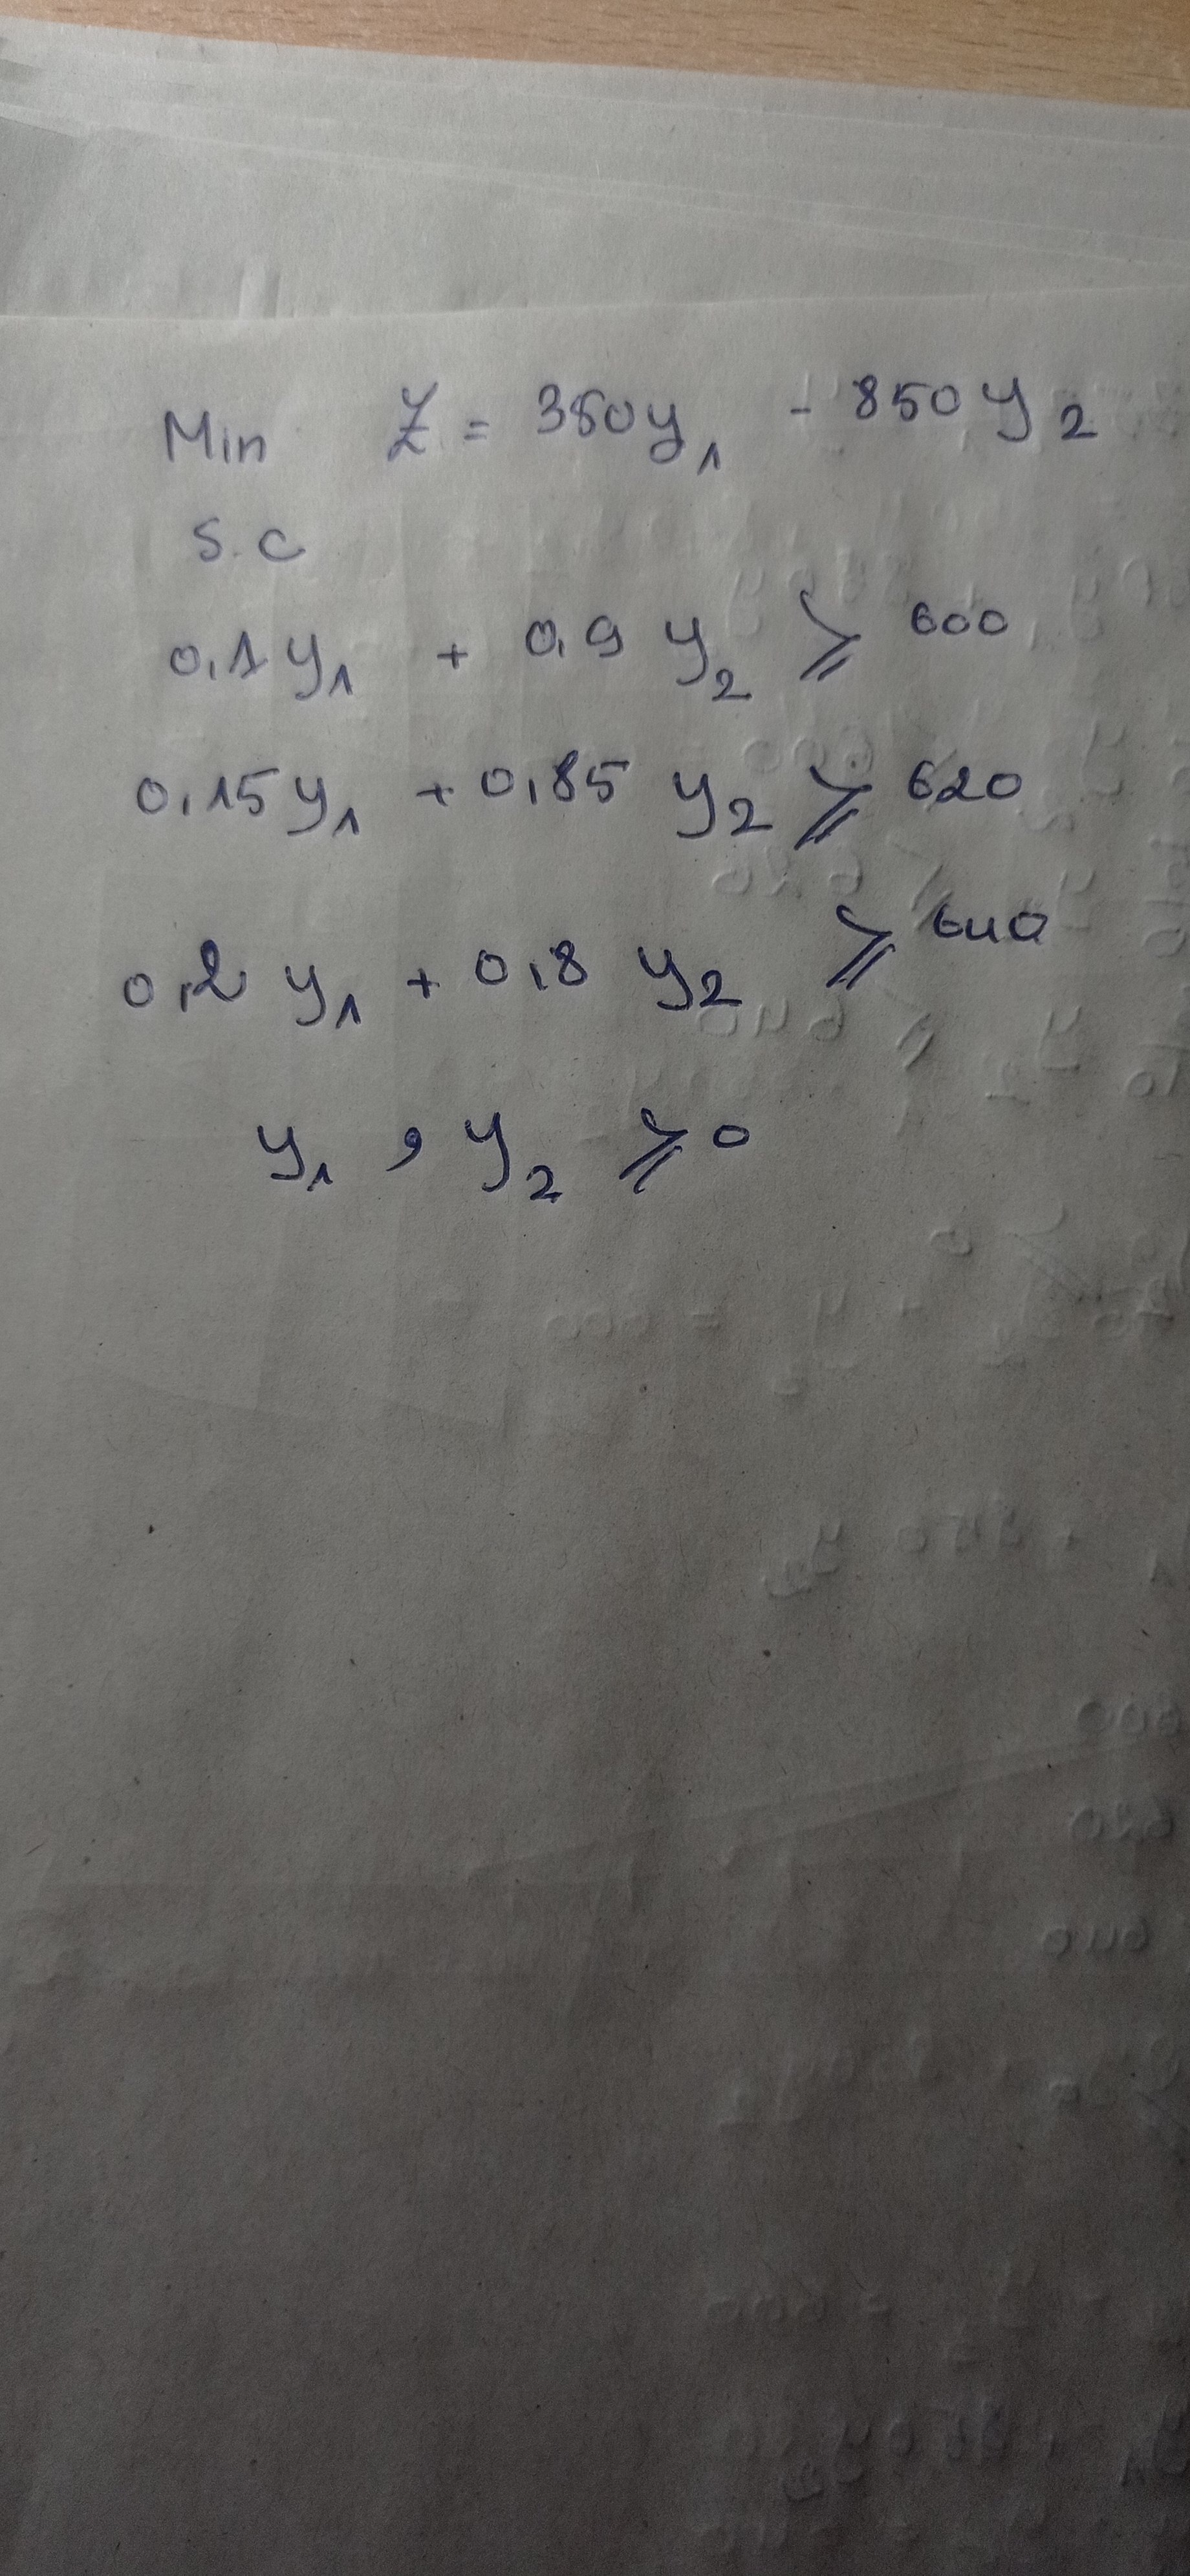 Min Z = 350y₁ - 850y₂
S.C
0,1y₁ + 0,9y₂ ⩾ 600
0,15y₁ + 0,85y₂ ⩾ 620
0,2y₁ + 0,8y₂ ⩾ 640
y₁, y₂ ⩾ 0